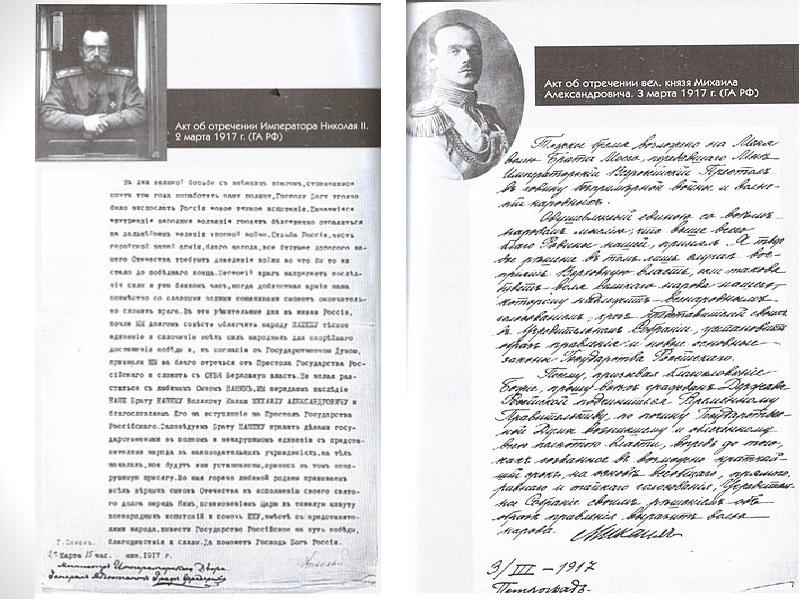 Акт об отречении Императора Николая II.
2 марта 1917 г. (ГА РФ)
Въ дни великой борьбы съ внѣшнимъ врагомъ, стремящимся
почти три года поработить нашу родину, Господу Богу угодно
было ниспослать Россіи новое тяжкое испытаніе. Начавшіяся
внутреннія народныя волненія грозятъ бѣдственно отразиться
на дальнѣйшемъ веденіи упорной войны. Судьба Россіи, честь
геройской нашей арміи, благо народа, все будущее дорогого на-
шего Отечества требуютъ доведенія войны во что бы то ни
стало до побѣднаго конца. Жестокій врагъ напрягаетъ послѣд-
нія силы и уже близокъ часъ, когда доблестная армія наша
совмѣстно со славными нашими союзниками сможетъ окончатель-
но сломить врага. Въ эти рѣшительные дни въ жизни Россіи,
почли МЫ долгомъ совѣсти облегчить народу НАШЕМУ тѣсное
единеніе и сплоченіе всѣхъ силъ народныхъ для скорѣйшаго
достиженія побѣды и, въ согласіи съ Государственною Думою,
признали МЫ за благо отречься отъ Престола Государства Рос-
сійскаго и сложить съ СЕБЯ Верховную власть. Не желая раз-
статься съ любимымъ Сыномъ НАШИМЪ, МЫ передаемъ наслѣдіе
НАШЕ Брату НАШЕМУ Великому Князю МИХАИЛУ АЛЕКСАНДРОВИЧУ и
благословляемъ Его на вступленіе на Престолъ Государства
Россійскаго. Заповѣдуемъ Брату НАШЕМУ править дѣлами госу-
дарственными въ полномъ и ненарушимомъ единеніи съ предста-
вителями народа въ законодательныхъ учрежденіяхъ, на тѣхъ
началахъ, кои будутъ ими установлены, принеся въ томъ нена-
рушимую присягу. Во имя горячо любимой родины призываемъ
всѣхъ вѣрныхъ сыновъ Отечества къ исполненію своего свято-
го долга передъ Нимъ, повиновеніемъ Царю въ тяжелую минуту
всенародныхъ испытаній и помочь ЕМУ, вмѣстѣ съ представите-
лями народа, вывести Государство Россійское на путь побѣды,
благоденствія и славы. Да поможетъ Господь Богъ Россіи.
Г. Псковъ.
2 Марта 15 час. мин. 1917 г.
Николай
Министръ Императорскаго Двора
Генералъ Адъютантъ Графъ Фредериксъ
Акт об отречении вел. князя Михаила
Александровича. 3 марта 1917 г. (ГА РФ)
Тяжкое бремя возложено на Меня
волею Брата Моего, передавшаго Мнѣ
Императорскій Всероссійскій Престолъ
въ годину безпримѣрной войны и волне-
ній народныхъ.
Одушевленный единою со всѣмъ
народомъ мыслью, что выше всего
благо Родины нашей, принялъ Я твер-
дое рѣшеніе въ томъ лишь случаѣ вос-
принять Верховную власть, если такова
будетъ воля великаго народа нашего,
которому надлежитъ всенароднымъ
голосованіемъ, чрезъ представителей своихъ
въ Учредительномъ Собраніи, установить
образъ правленія и новые основные
законы Государства Россійскаго.
Посему, призывая благословеніе
Божіе, прошу всѣхъ гражданъ Державы
Россійской подчиниться Временному
Правительству, по почину Государствен-
ной Думы возникшему и облеченному
всею полнотою власти, впредь до того,
какъ созванное въ возможно кратчай-
шій срокъ, на основѣ всеобщаго, прямого,
равнаго и тайнаго голосованія, Учредитель-
ное Собраніе своимъ рѣшеніемъ объ
образѣ правленія выразитъ волю
народа.
Михаилъ
3/III — 1917
Петроградъ.